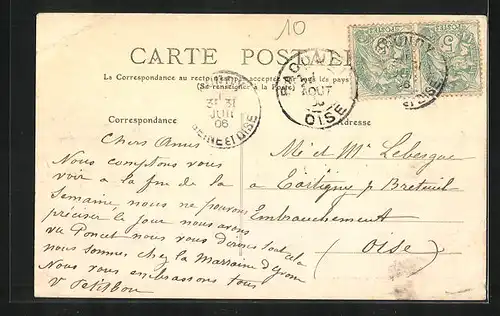 10
CARTE POSTALE
La Correspondance au recto n'est pas acceptée par tous les pays
(Se renseigner à la Poste)
Correspondance
Adresse
31
JUIL
06
SEINE ET OISE
AOUT
OISE
Chers Amis
Nous comptons vous
voir à la fin de la
semaine nous ne pouvons
préciser le jour nous avons
vu Poncet nous vous dirons tout cela
nous sommes chez la Marraine d'Yvonne
Nous vous embrassons tous
V Petitbon
Mr et Me Lebesgue
à Tartigny p Breteuil
Embranchement
(Oise)